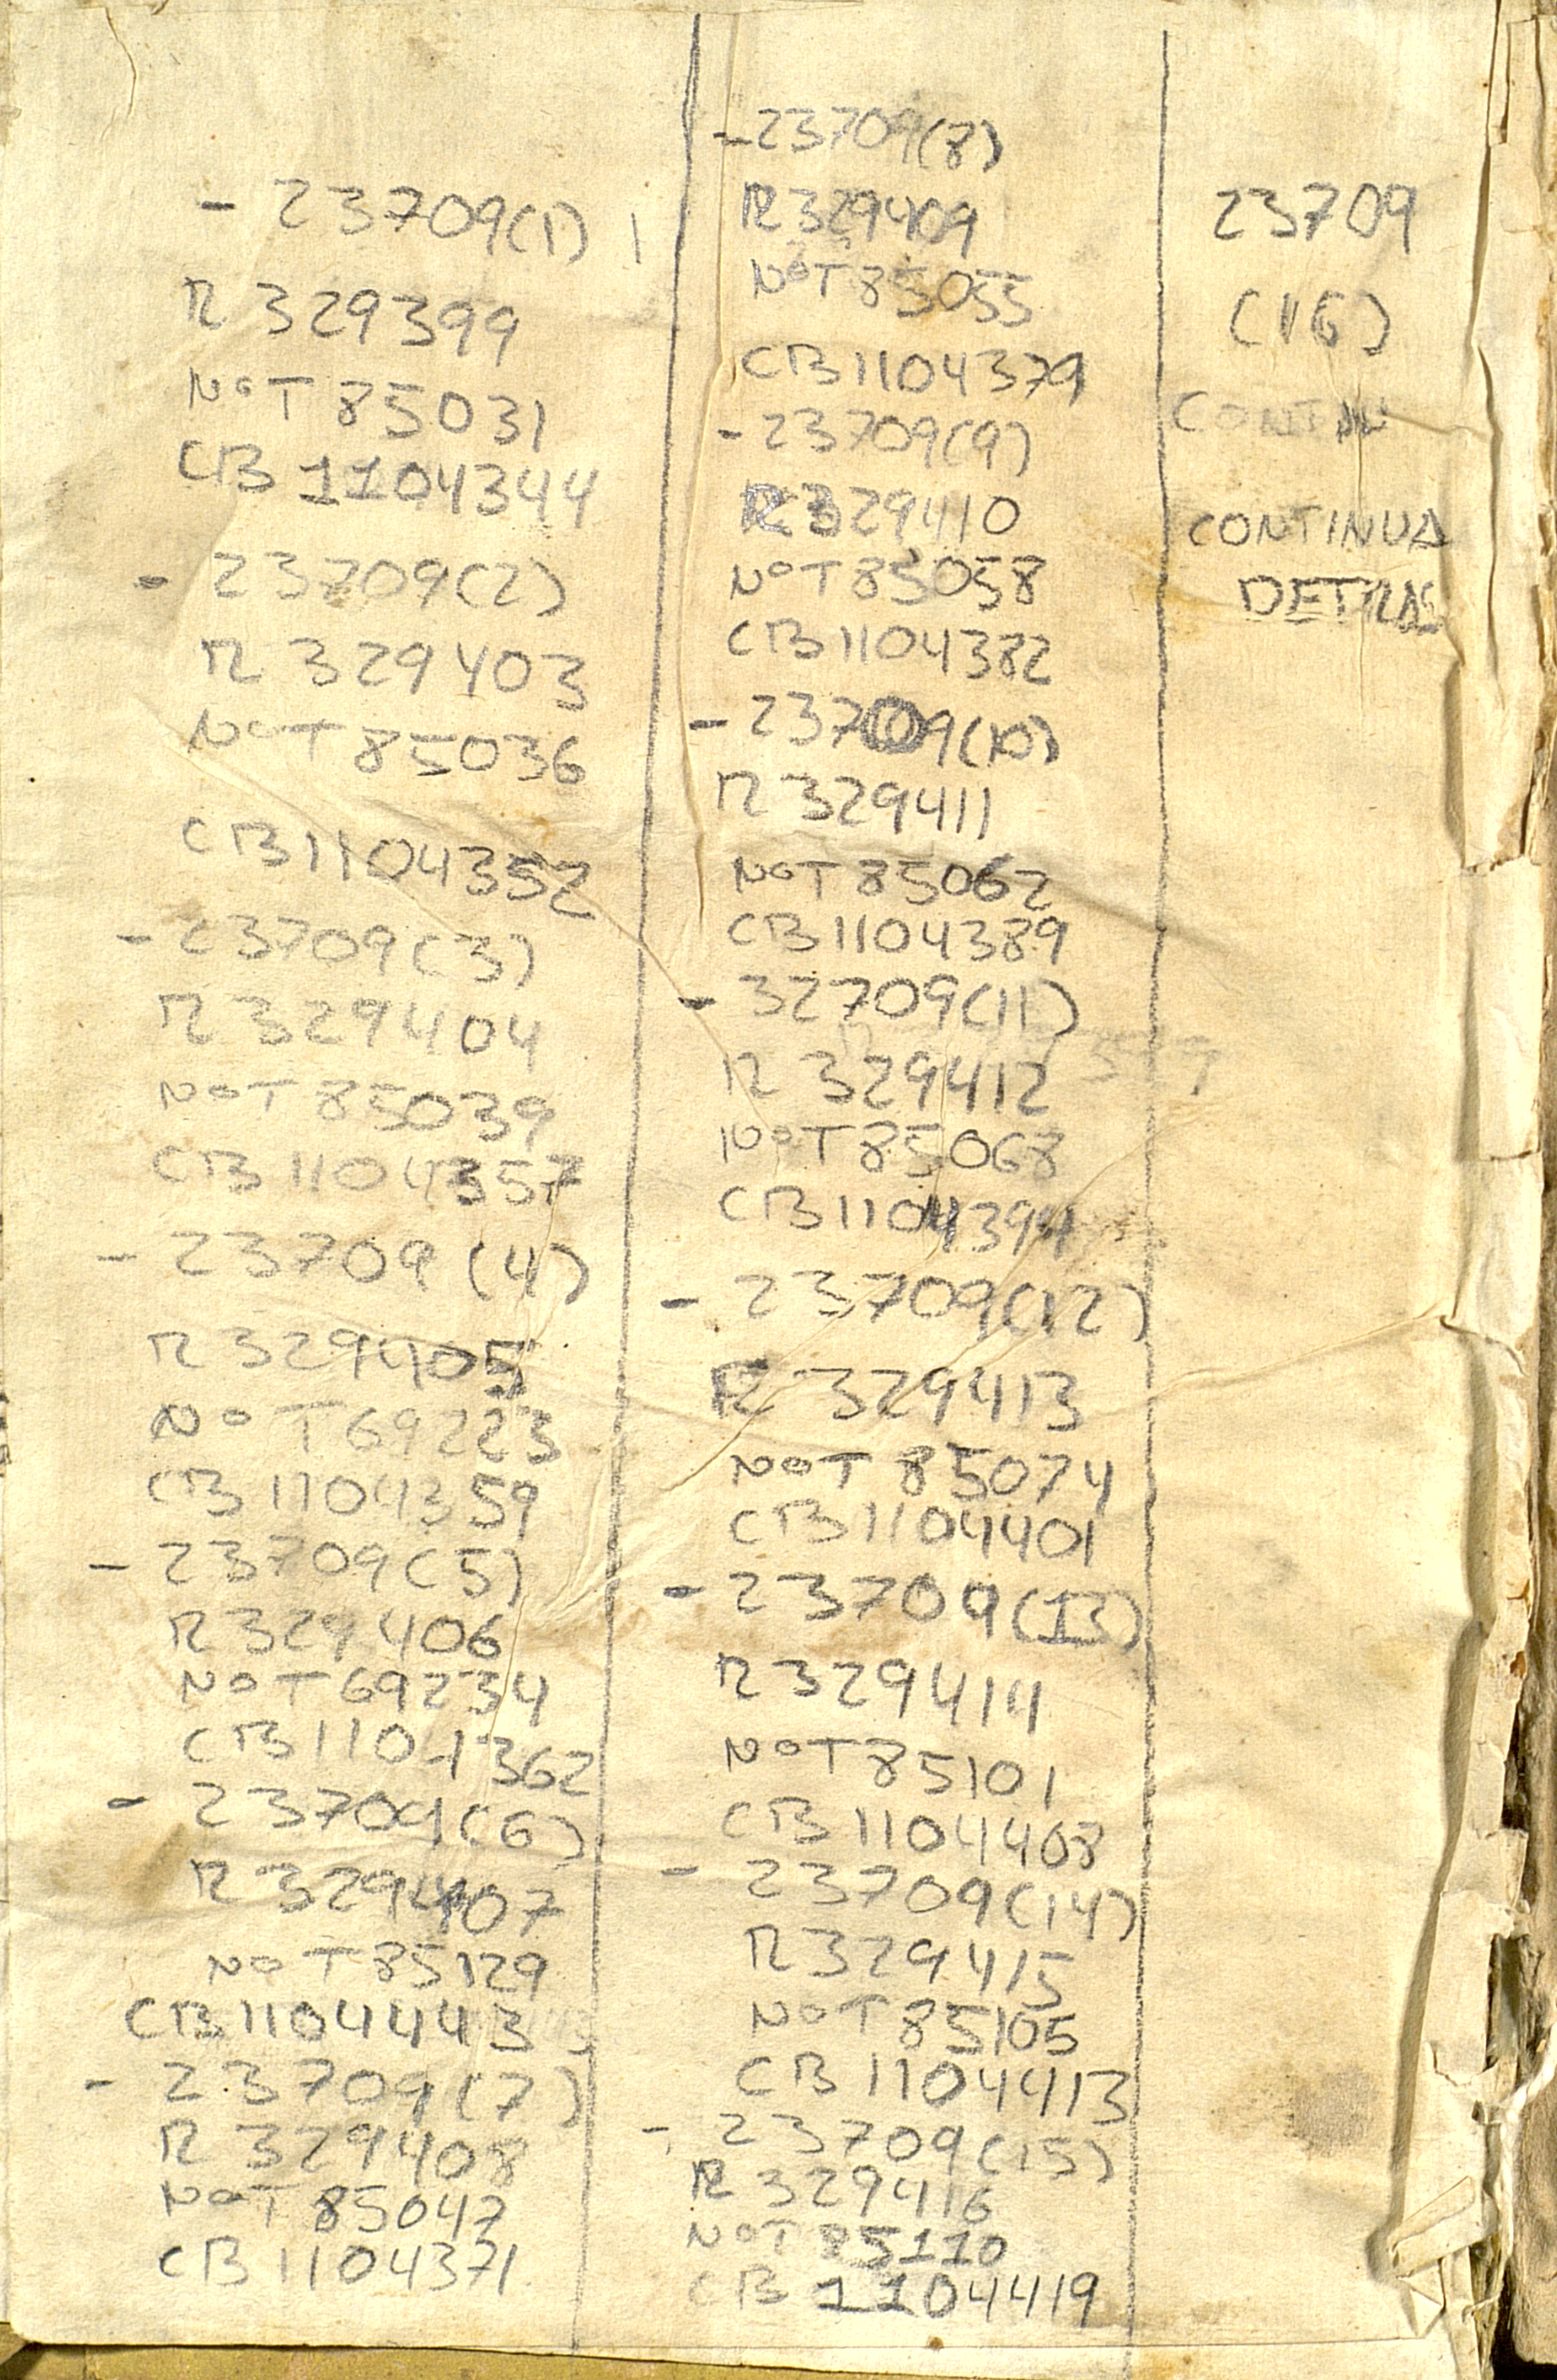 - 23709(1)
R 329399
NOT 85031
CB 1104344
- 23709(2)
R 329403
NOT 85036
CB 1104352
- 23709(3)
R 329404
NOT 85039
CB 1104357
- 23709 (4)
R 329405
NOT 69223
CB 1104359
- 23709(5)
R 329406
NOT 69234
CB 1104362
- 23709(6)
R 329407
NOT 85129
CB 1104443
- 23709(7)
R 329408
NOT 85047
CB 1104371
- 23709(8)
R 329409
NOT 85055
CB 1104379
- 23709(9)
R 329410
NOT 85058
CB 1104382
- 23709(10)
R 329411
NOT 85062
CB 1104389
- 32709(11)
R 329412
NOT 85068
CB 1104394
- 23709(12)
R 329413
NOT 85074
CB 1104401
- 23709(13)
R 329414
NOT 85101
CB 1104408
- 23709(14)
R 329415
NOT 85105
CB 1104413
- 23709(15)
R 329416
NOT 85110
CB 1104419
23709
(16)
CONTINU
CONTINUA
DETRAS